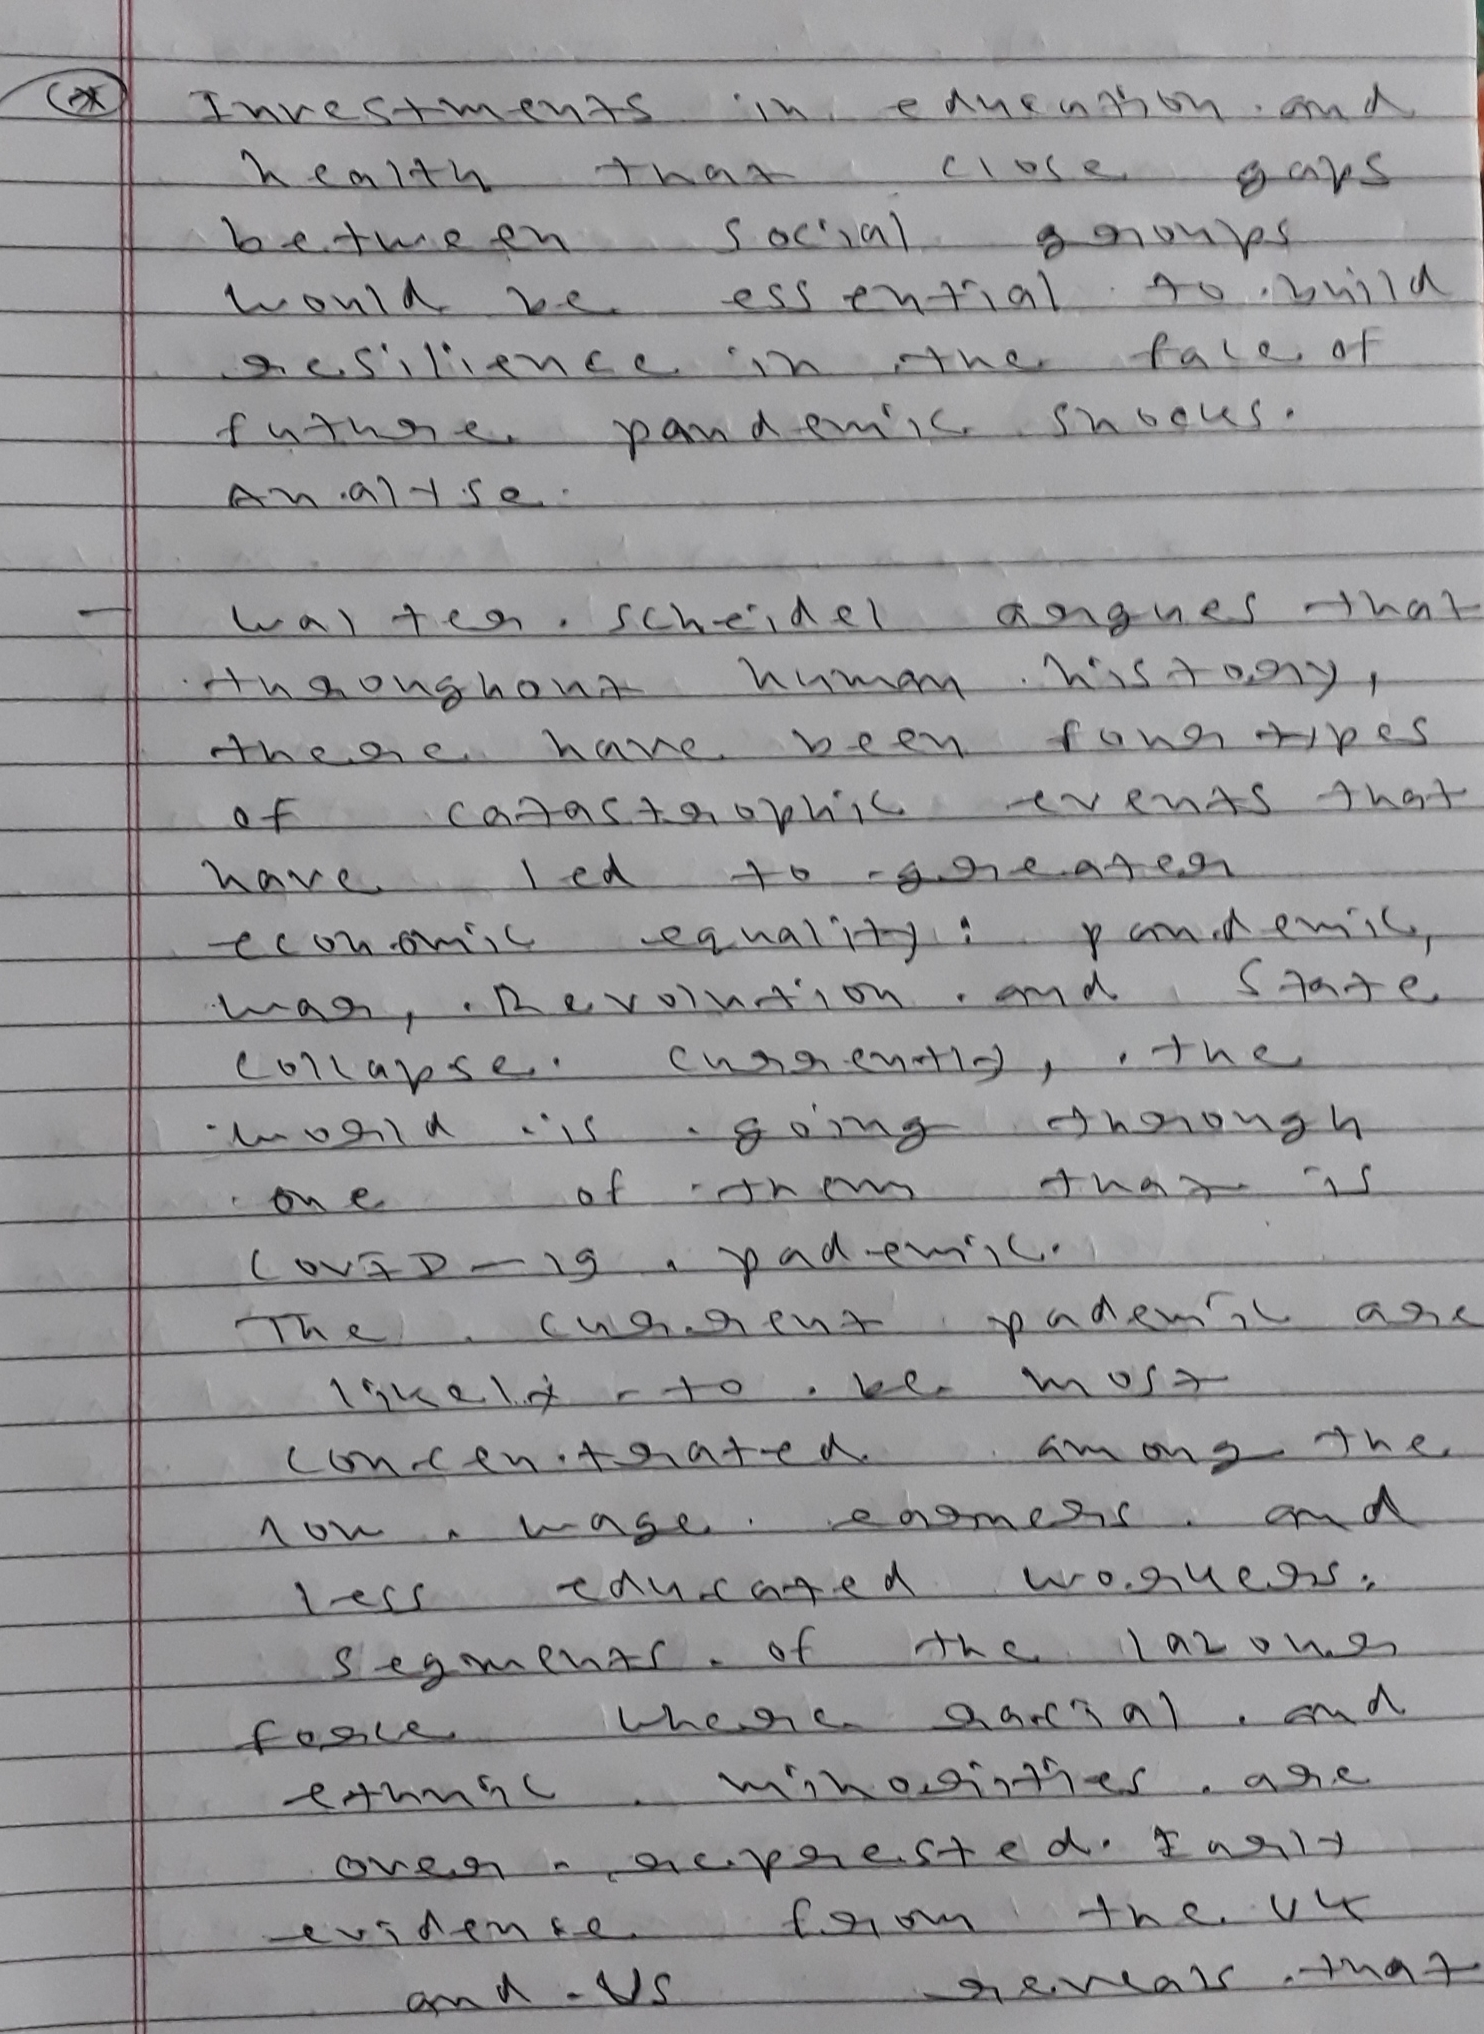 (*) Investments in education and
health that close gaps
between social groups
would be essential to build
resilience in the face of
future pandemic shocks.
Analyse.
- Walter Scheidel argues that
throughout human history,
there have been four types
of catastrophic events that
have led to greater
economic equality: pandemic,
war, Revolution and State
collapse. Currently, the
world is going through
one of them that is
COVID-19 pademic.
The current pademic are
likely to be most
concentrated among the
low wage earners and
less educated workers.
segments of the labour
force where racial and
ethnic minorities are
over represted. Early
evidence from the UK
and US reveals that